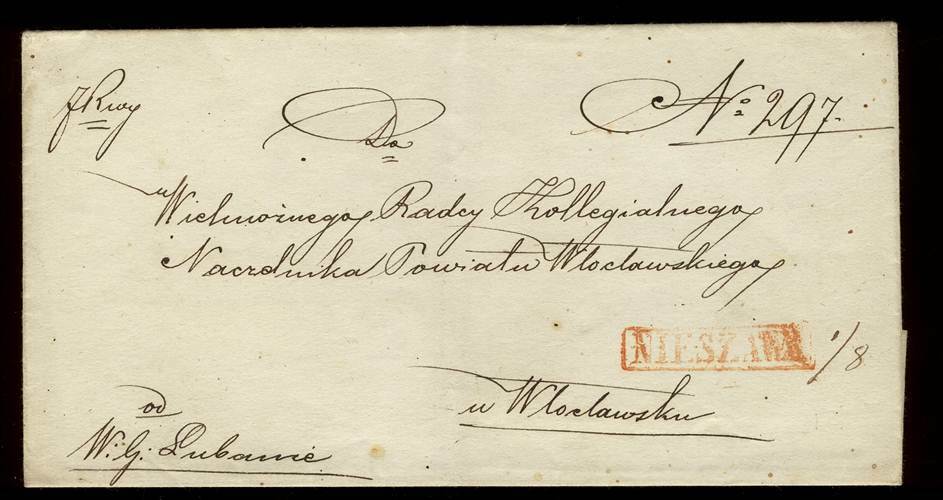 Do
No 297.
Wielmożnego Radcy Kollegialnego
Naczelnika Powiatu Włocławskiego
NIESZAWA 1/8
w Włocławsku
od
W. G. Lubanie